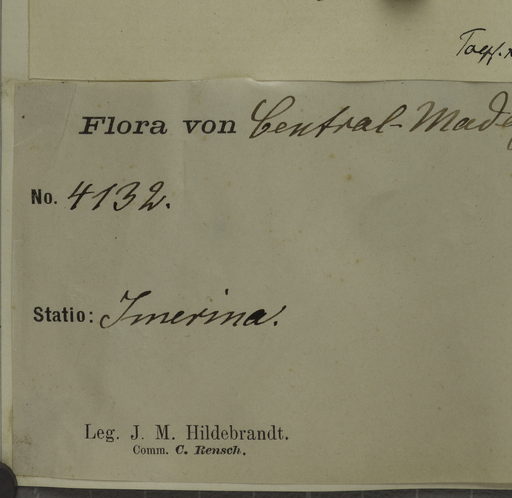 Flora von Central-Mada
No. 4132.
Statio: Imerina.
Leg. J. M. Hildebrandt.
Comm. C. Rensch.